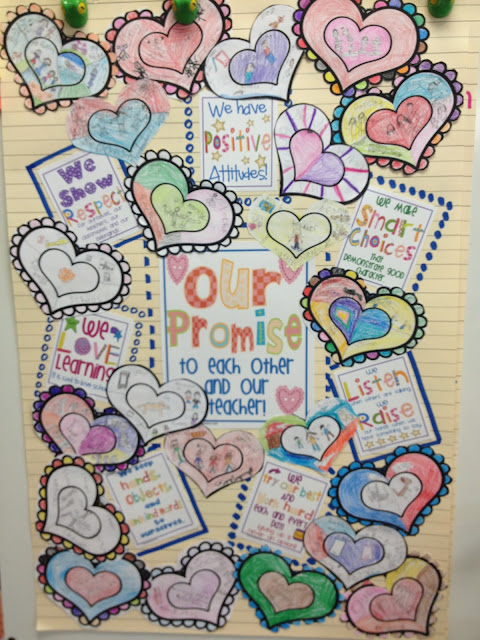 We have
Positive
Attitudes!
We
Show
Respect
We make
Smart
Choices
that
demonstrate good
character
Our
Promise
to each other
and our
teacher!
We
LOVE
Learning
We
Listen
when others are talking
We
Raise
our hands when we
have something to say
We keep
hands,
objects,
and
unkind words
to
ourselves.
We
try our best
and
work hard
each and every
day!